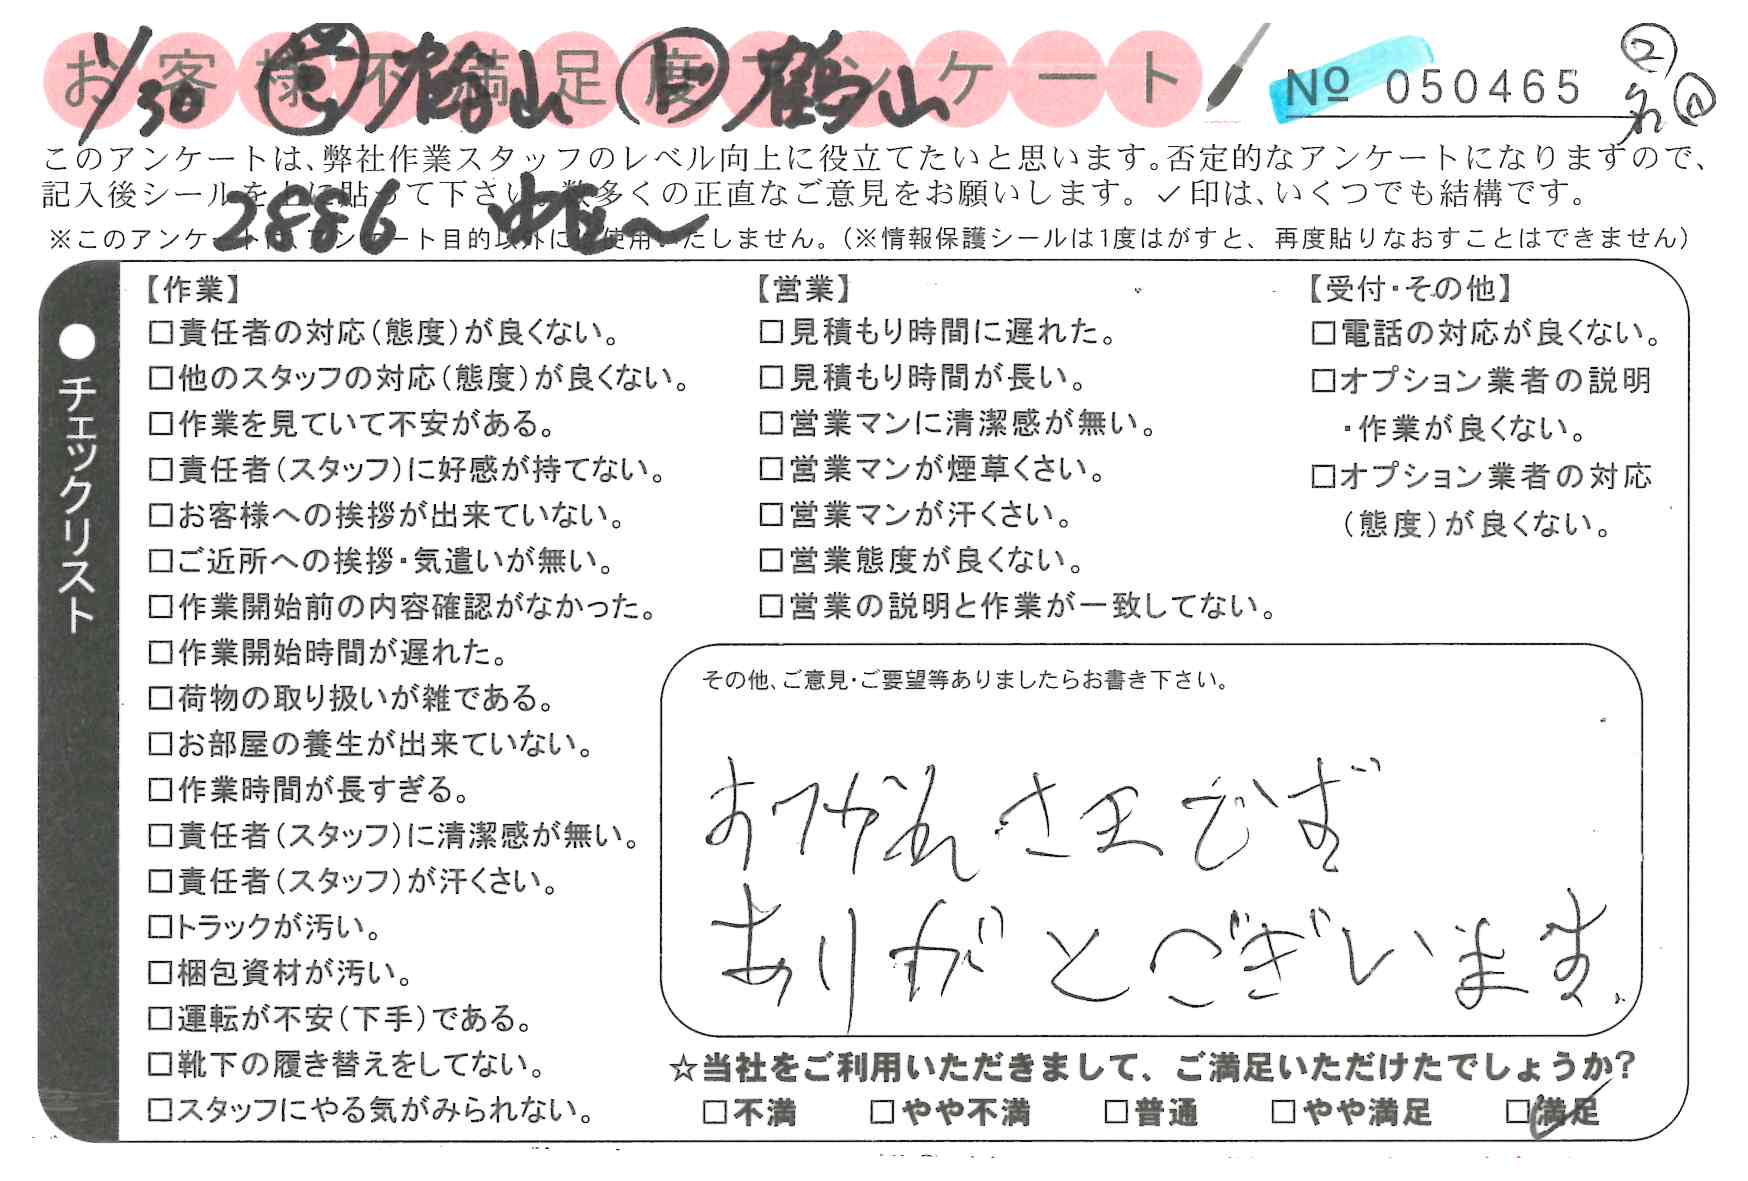 お客様不満足度アンケート
No 050465
11/30
2886
このアンケートは、弊社作業スタッフのレベル向上に役立てたいと思います。否定的なアンケートになりますので、
記入後シールを上に貼って下さい。数多くの正直なご意見をお願いします。✓印は、いくつでも結構です。
※このアンケートは、アンケート目的以外には使用いたしません。(※情報保護シールは1度はがすと、再度貼りなおすことはできません)
●チェックリスト
【作業】
□責任者の対応(態度)が良くない。
□他のスタッフの対応(態度)が良くない。
□作業を見ていて不安がある。
□責任者(スタッフ)に好感が持てない。
□お客様への挨拶が出来ていない。
□ご近所への挨拶・気遣いが無い。
□作業開始前の内容確認がなかった。
□作業開始時間が遅れた。
□荷物の取り扱いが雑である。
□お部屋の養生が出来ていない。
□作業時間が長すぎる。
□責任者(スタッフ)に清潔感が無い。
□責任者(スタッフ)が汗くさい。
□トラックが汚い。
□梱包資材が汚い。
□運転が不安(下手)である。
□靴下の履き替えをしてない。
□スタッフにやる気がみられない。
【営業】
□見積もり時間に遅れた。
□見積もり時間が長い。
□営業マンに清潔感が無い。
□営業マンが煙草くさい。
□営業マンが汗くさい。
□営業態度が良くない。
□営業の説明と作業が一致してない。
【受付・その他】
□電話の対応が良くない。
□オプション業者の説明
・作業が良くない。
□オプション業者の対応
(態度)が良くない。
その他、ご意見・ご要望等ありましたらお書き下さい。
おつかれさまです
ありがとございます。
☆当社をご利用いただきまして、ご満足いただけたでしょうか?
□不満 □やや不満 □普通 □やや満足 □満足